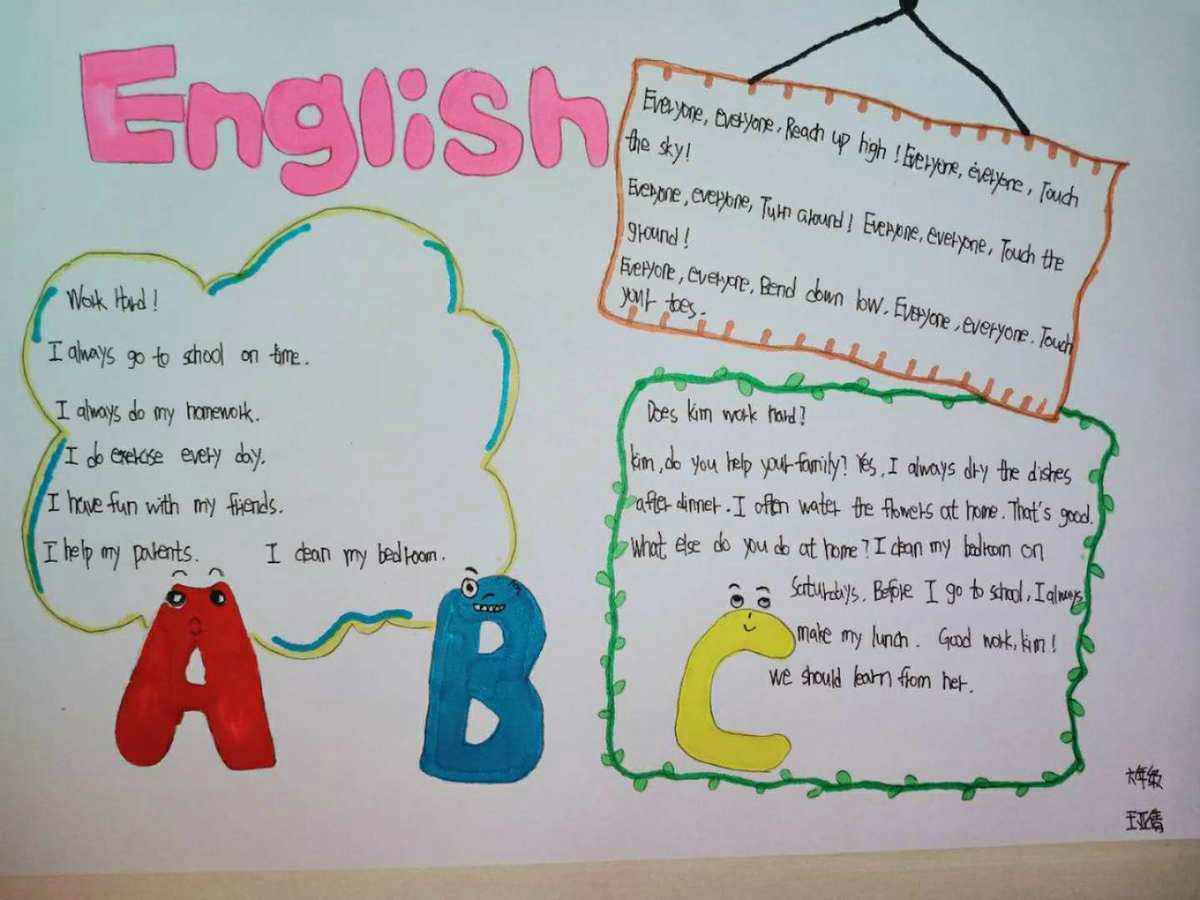 English
Everyone, everyone, Reach up high! Everyone, everyone, Touch
the sky!
Everyone, everyone, Turn around! Everyone, everyone, Touch the
ground!
Everyone, everyone, Bend down low. Everyone, everyone. Touch
your toes.
Work Hard!
I always go to school on time.
I always do my homework.
I do exercise every day.
I have fun with my friends.
I help my parents. I clean my bedroom.
A B C
Does kim work hard?
kim, do you help your family? Yes, I always dry the dishes
after dinner. I often water the flowers at home. That's good.
What else do you do at home? I clean my bedroom on
Saturdays. Before I go to school, I always
make my lunch. Good work, kim!
we should learn from her.
六年级
王亚